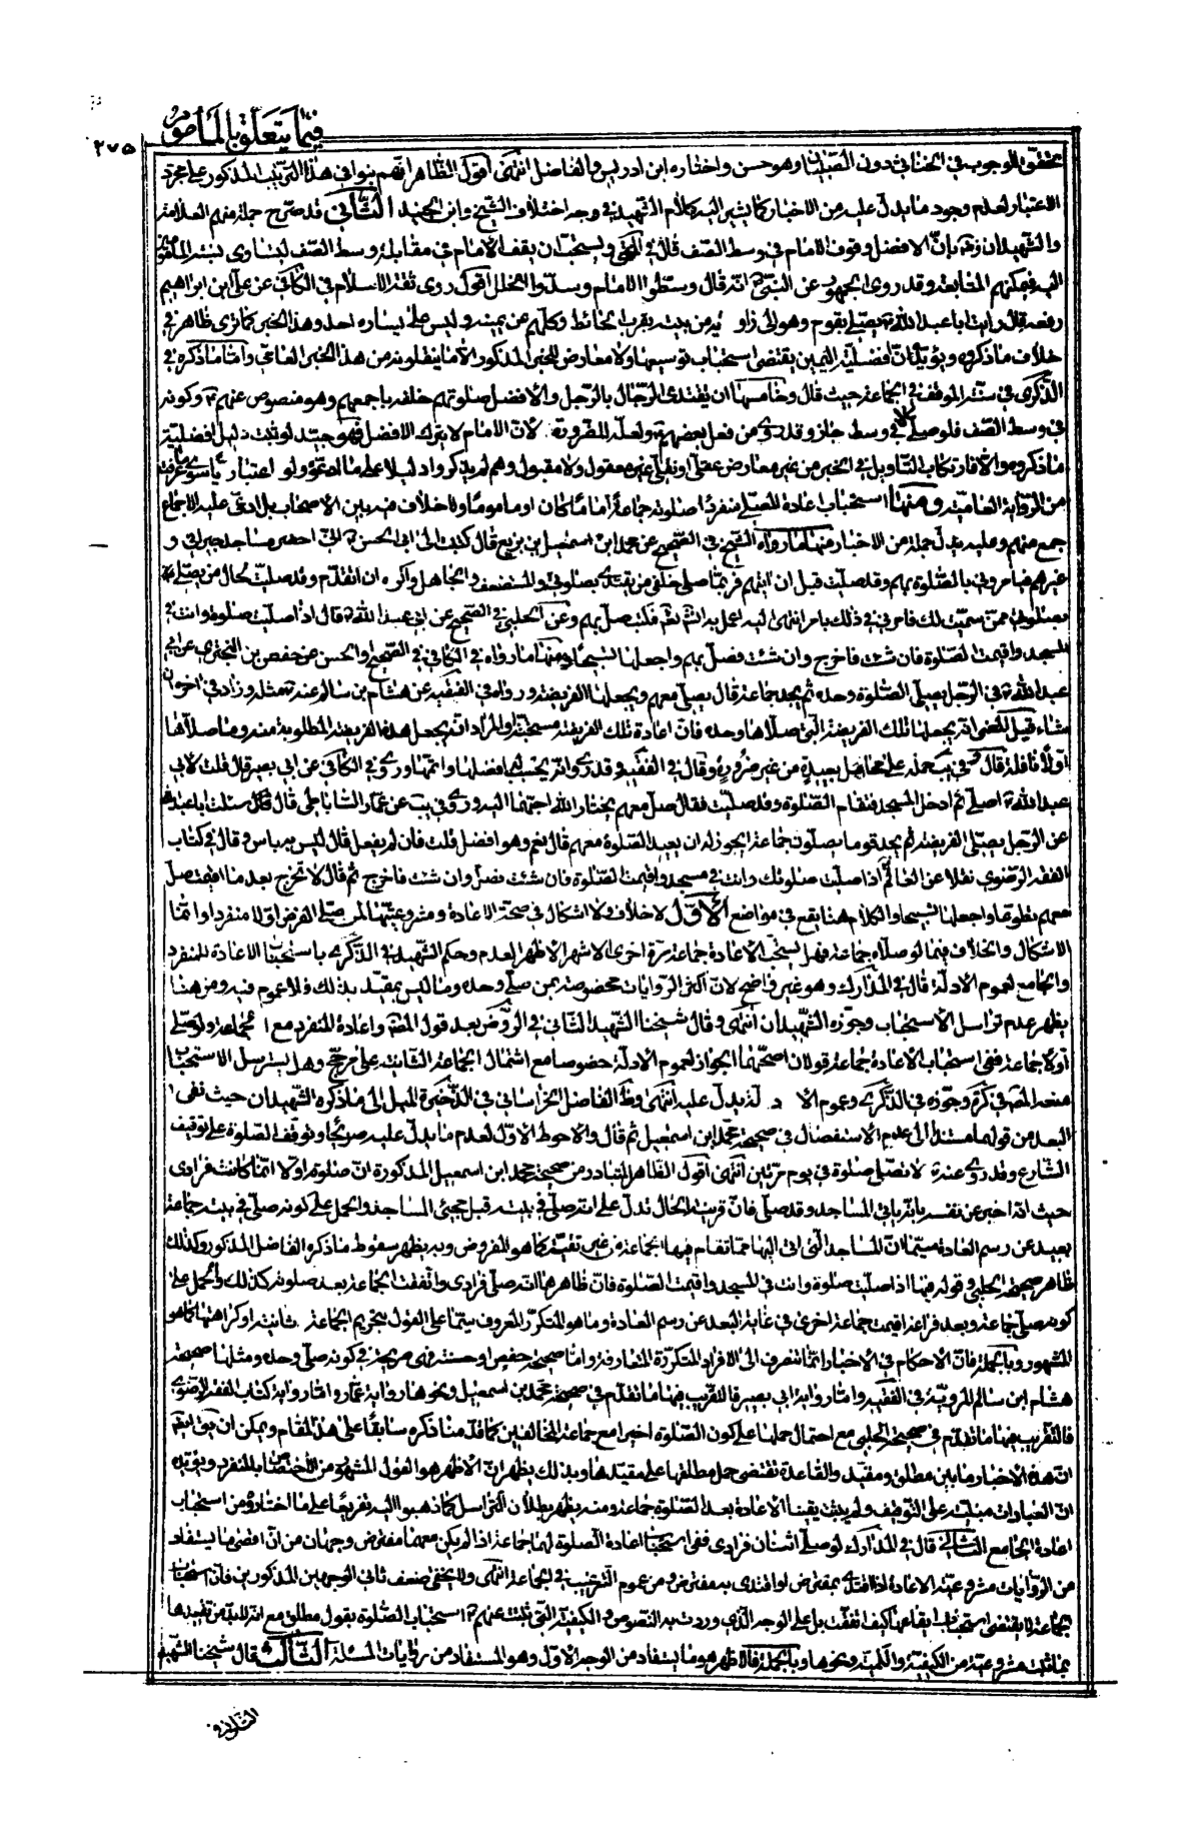 فيما يتعلق بالمأموم
٢٧٥
تحقق الوجوب في الخناثى دون الصبيان وهو حسن واختاره ابن ادريس والفاضل انتهى اقول الظاهر انهم بنوا في هذا الترتيب المذكور على مجرد
الاعتبار لعدم وجود ما يدل عليه من الاخبار كما يشير اليه كلام الشهيد في وجه اختلاف الشيخ وابن الجنيد الثاني قد صرح جملة منهم العلامة
والشهيدان بان الافضل وقوف الامام في وسط الصف قال في ويستحب ان يقف الامام في مقابلة وسط الصف ليتساوى نسبة المأمومين
اليه فيمكنهم المتابعة وقد روى الجمهور عن النبي انه قال وسطوا الامام وسدوا الخلل اقول روى ثقة الاسلام في الكافي عن علي بن ابراهيم
رفعه قال رايت ابا عبد الله يصلي بقوم وهو الى زاوية من بيته بقرب الحائط وكلهم عن يمينه وليس على يساره احد وهذا الخبر كما ترى ظاهر في
خلاف ما ذكروه ويؤيده ان افضلية اليمين يقتضي استحباب توسيعها ولا معارض للخبر المذكور الا ما ينقلونه من هذا الخبر العامي واما ما ذكره في
الذكرى في سنة الموقف في الجماعة حيث قال وخامسها ان يقتدي الرجال بالرجل والافضل صلوتهم خلفه باجمعهم وهو منصوص عنهم وكونه
في وسط الصف فلو صلى لا في وسط جاز وقد روى من فعل بعضهم ولعله للضرورة لان الامام لا يترك الافضل فهو جيد لو ثبت دليل افضلية
ما ذكروه والا فارتكاب التأويل في الخبر من غير معارض عقلي او نقلي غير معقول ولا مقبول وهم لم يذكروا دليلا على ما ادعوه ولو اعتبارا سوى ما عرفت
من الرواية العامية ومنها استحباب اعادة المصلي منفردا صلوته جماعة اماما كان او مأموما ولا خلاف فيه بين الاصحاب بل ادعى عليه الاجماع
جمع منهم وعليه يدل جملة من الاخبار منها ما رواه الشيخ في الصحيح عن محمد بن اسمعيل بن بزيع قال كتبت الى ابي الحسن اني احضر مساجد جيراني و
غيرهم فيأمروني بالصلوة بهم وقد صليت قبل ان اتيهم فربما صلى خلفي من يقتدي بصلوتي والمستضعف والجاهل واكره ان اتقدم وقد صليت لحال من يصلي
بصلوتي ممن سميت لك فامرني في ذلك بامر انتهي اليه اعمل به انشاء الله فكتب صل بهم وعن الحلبي في الصحيح عن ابي عبد الله قال اذا صليت صلوة وانت في
المسجد واقيمت الصلوة فان شئت فاخرج وان شئت فصل بهم واجعلها تسبيحا ومنها ما رواه في الكافي في الصحيح او الحسن عن حفص بن البختري عن ابي
عبد الله في الرجل يصلي الصلوة وحده ثم يجد جماعة قال يصلي معهم ويجعلها الفريضة ورواه في الفقيه عن هشام بن سالم عنه مثله وزاد في اخره ان
شاء قيل المعنى انه يجعلها تلك الفريضة التي صلاها وحده فان اعادة تلك الفريضة مستحبة او المراد انه يجعل هذه الفريضة المطلوبة منه وما صلاها
اولا نافلة قال في يب حمله على هذا محامل بعيدة من غير ضرورة وقال في الفقيه وقد روى انه يحسب له افضلهما واتمهما وروى في الكافي عن ابي بصير قال قلت لابي
عبد الله اصلي ثم ادخل المسجد فتقام الصلوة وقد صليت فقال صل معهم يختار الله احبهما اليه وروى في يب عن عمار الساباطي قال سئلت ابا عبد الله
عن الرجل يصلي الفريضة ثم يجد قوما يصلون جماعة ايجوز له ان يعيد الصلوة معهم قال نعم وهو افضل قلت فان لم يفعل قال ليس به باس وقال في كتاب
الفقه الرضوي نقلا عن العالم اذا صليت صلوتك وانت في مسجد واقيمت الصلوة فان شئت فصل وان شئت فاخرج ثم قال لا تخرج بعد ما اقيمت صل
معهم تطوعا واجعلها تسبيحا والكلام هنا يقع في مواضع الاول لا خلاف ولا اشكال في صحة الاعادة ومشروعيتها لمن صلى الفرض اولا منفردا وانما
الاشكال والخلاف فيما لو صلاه جماعة فهل يستحب الاعادة جماعة مرة اخرى الاشهر الاظهر العدم وحكم الشهيد في الذكرى باستحباب الاعادة للمنفرد
والجامع لعموم الادلة قال في المدارك وهو غير واضح لان اكثر الروايات مخصوصة بمن صلى وحده وما ليس بمقيد بذلك فلا عموم فيه ومن هنا
يظهر عدم تراسل الاستحباب وجوزه الشهيدان انتهى وقال شيخنا الشهيد الثاني في الروض بعد قول المصنف واعادة المنفرد مع الجماعة ولو صلى
اولا جماعة ففي استحباب الاعادة جماعة قولان اصحهما الجواز لعموم الادلة خصوصا مع اشتمال الجماعة الثانية على مرجح وهل يسترسل الاستحباب
منعه المصنف في كره وجوزه في الذكرى وعموم الادلة يدل عليه انتهى وظاهر الفاضل الخراساني في الذخيرة الميل الى ما ذكره الشهيدان حيث نفى
البعد من قولهما مستندا الى عدم الاستفصال في صحيحة محمد بن اسمعيل ثم قال والاحوط الاول لعدم ما يدل عليه صريحا وتوقف الصلوة على توقيف
الشارع وقد روى عنه لا تصلى صلوة في يوم مرتين انتهى اقول الظاهر المتبادر من صحيحة محمد ابن اسمعيل المذكورة ان صلوته اولا انما كانت فرادى
حيث انه اخبر عن نفسه بانه ياتي المساجد وقد صلى فان قرينة الحال تدل على انه صلى في بيته قبل مجيئ المساجد والحمل على كونه صلى في بيته جماعة
بعيد عن رسم العادة سيما ان المساجد التي اتى اليها مما تقام فيها الجماعة من غير تقية كما هو المفروض وبه يظهر سقوط ما ذكره الفاضل المذكور وكذلك
ظاهر صحيحة الحلبي وقوله فيها اذا صليت صلوة وانت في المسجد واقيمت الصلوة فان ظاهرها انه صلى فرادى واتفقت الجماعة بعد صلوته كذلك والحمل على
كونه صلى جماعة وبعد فراغه اقيمت جماعة اخرى في غاية البعد عن رسم العادة وما هو المتكرر المعروف سيما على القول بتحريم الجماعة ثانية او كراهتها كما هو
المشهور وبالجملة فان الاحكام في الاخبار انما تنصرف الى الافراد المتكررة المتعارفة واما صحيحة حفص او حسنته فهي صريحة في كونه صلى وحده ومثلها صحيحة
هشام ابن سالم المروية في الفقيه واما رواية ابي بصير فالتقريب فيها ما تقدم في صحيحة محمد بن اسمعيل ونحوها رواية عمار واما رواية كتاب الفقه الرضوي
فالتقريب فيها ما تقدم في صحيحة الحلبي مع احتمال حملها على كون الصلوة اخيرا مع جماعة المخالفين كما قدمنا ذكره سابقا على هذا المقام ويمكن ان يق ايضا
ان هذه الاخبار ما بين مطلق ومقيد والقاعدة تقتضي حمل مطلقها على مقيدها وبذلك يظهر ان الاظهر هو القول المشهور من الاختصاص بالمنفرد ويؤيده
ان العبادات مبنية على التوقيف ولم يثبت يقينا الاعادة بعد الصلوة جماعة ومنه يظهر بطلان التراسل كما ذهبوا اليه تفريعا على ما اختاروه من استحباب
اعادة الجامع الثاني قال في المدارك لو صلى اثنان فرادى ففي استحباب اعادة الصلوة لهما جماعة اذا لم يكن معهما مفترض وجهان من ان اقصى ما يستفاد
من الروايات مشروعية الاعادة اذا اقتدى بمفترض او اقتدى به مفترض ومن عموم الترغيب في الجماعة انتهى ولا يخفى ضعف ثاني الوجهين المذكورين فان استحباب
الجماعة لا يقتضي استحباب ايقاعها كيف اتفقت بل على الوجه الذي وردت به النصوص والكيفية التي ثبتت عنهم استحباب الصلوة بقول مطلق مع انه لا بد من تقييدها
بما ثبت مشروعيته من الكيفية والكمية ونحوها وبالجملة فالاظهر هو ما يستفاد من الوجه الاول وهو المستفاد من روايات المسئلة الثالث قال شيخنا الشهيد
الثاني في